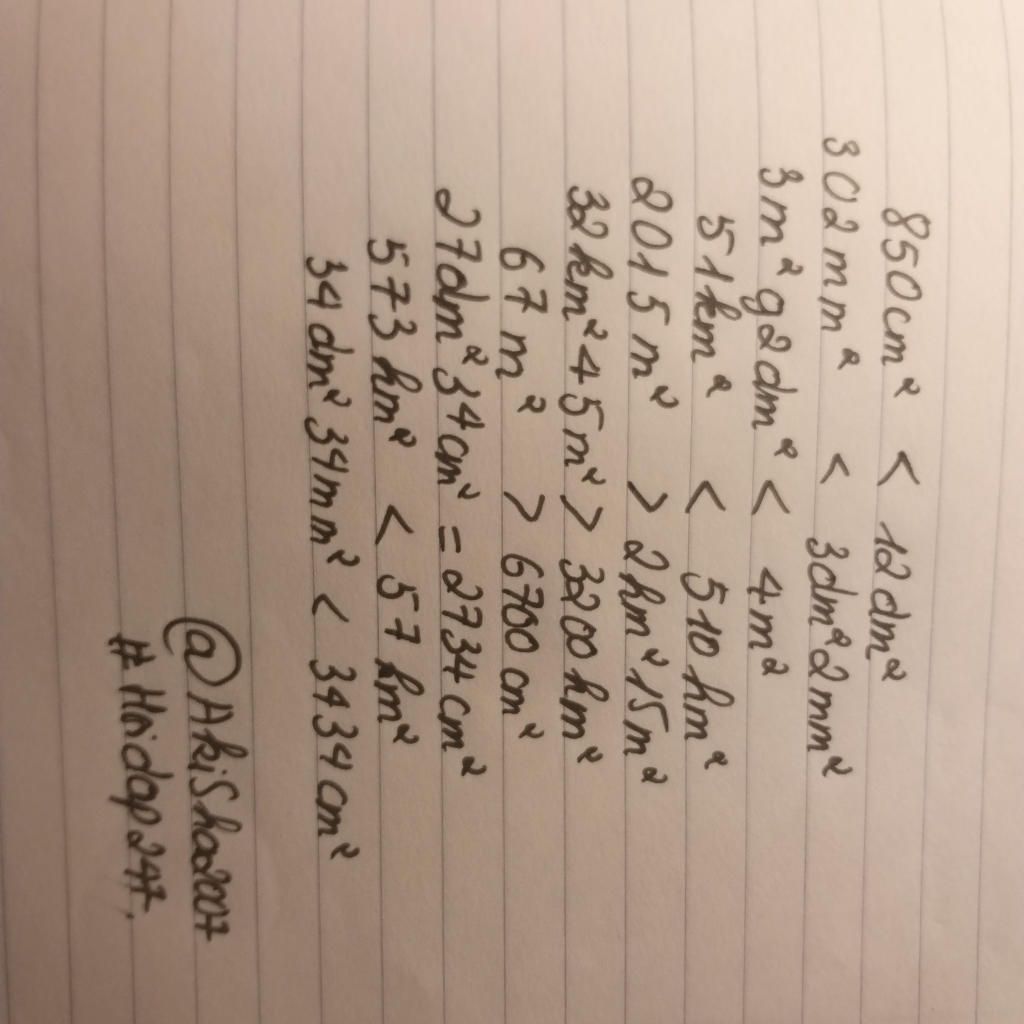 850cm² < 12dm²
302mm² < 3dm²2mm²
3m²92dm² < 4m²
51km² < 510hm²
2015m² > 2hm²15m²
32km²45m² > 3200hm²
67m² > 6700cm²
27dm²34cm² = 2734cm²
573hm² < 57km²
34dm²34mm² < 3434cm²
@AkiShao2007
#Hoidap247.